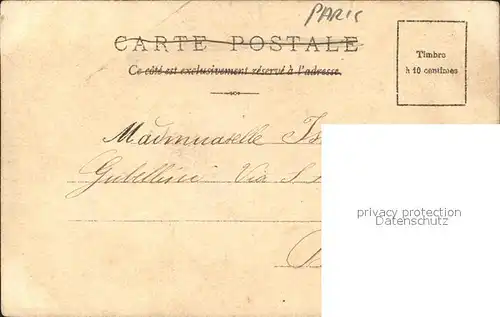 PARIS
CARTE POSTALE
Ce côté est exclusivement réservé à l'adresse.
Timbre
à 10 centimes
Madmuaselle
Gubellini Via S
privacy protection
Datenschutz